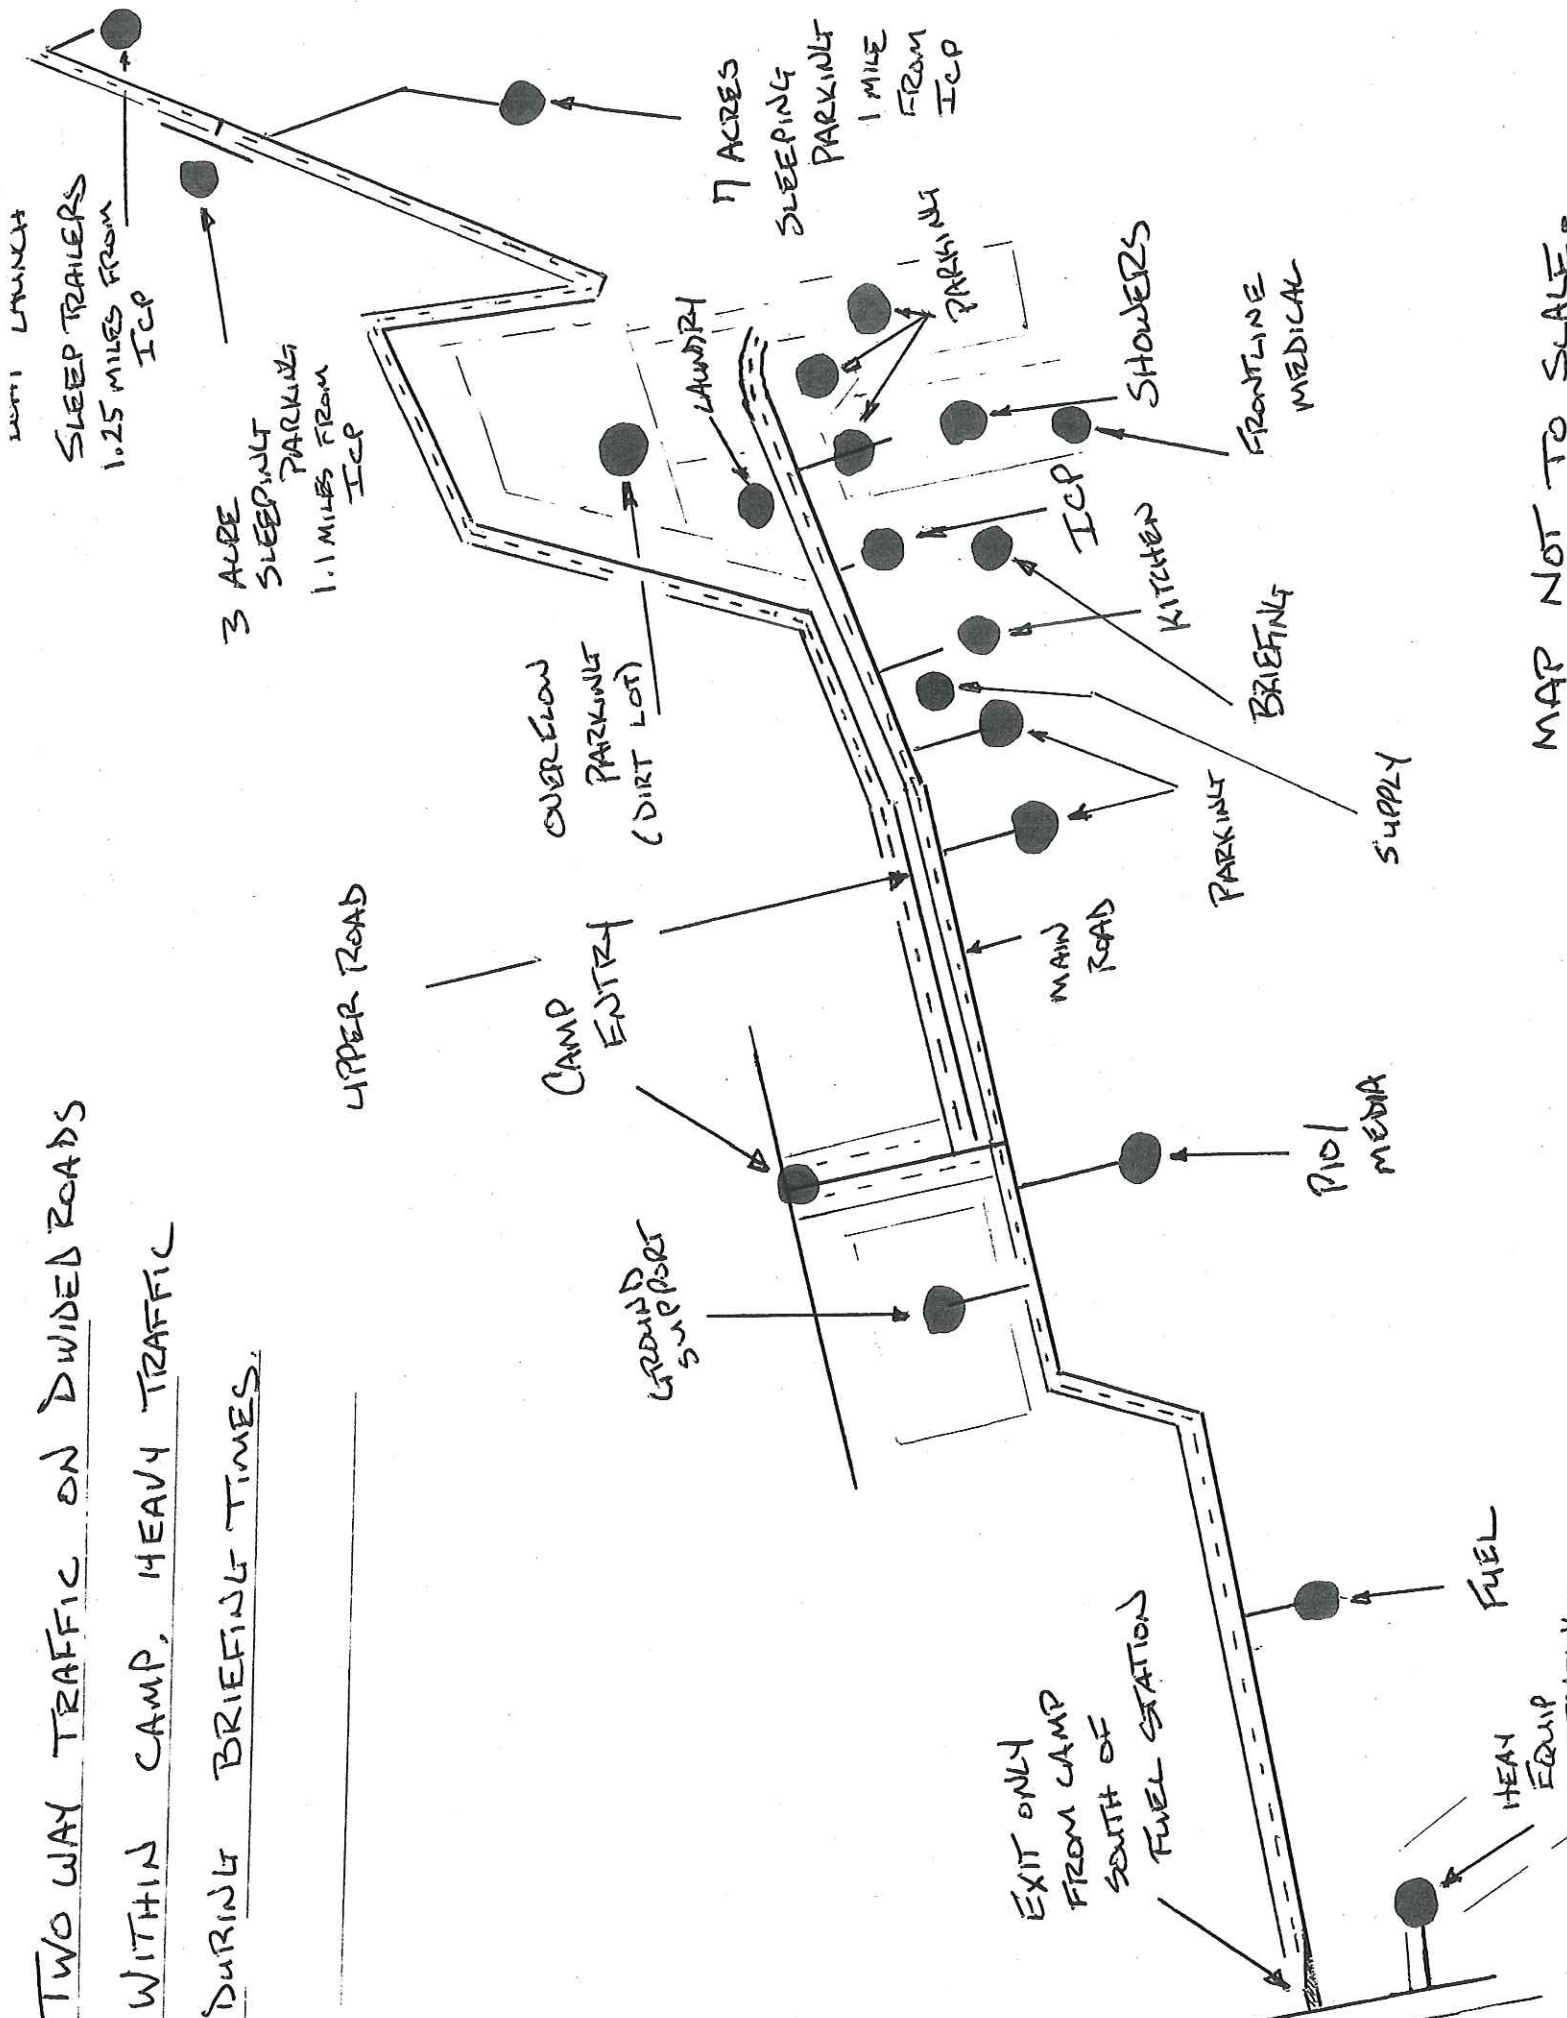 TWO WAY TRAFFIC ON DIVIDED ROADS
WITHIN CAMP. HEAVY TRAFFIC
DURING BRIEFING TIMES.
UPPER ROAD
SLEEP TRAILERS
1.25 MILES FROM
ICP
3 ACRE
SLEEPING
PARKING
1.1 MILES FROM
ICP
7 ACRES
SLEEPING
PARKING
1 MILE
FROM
ICP
OVERFLOW
PARKING
(DIRT LOT)
CAMP
ENTRY
LAUNDRY
PARKING
SHOWERS
FRONTLINE
MEDICAL
ICP
KITCHEN
BRIEFING
SUPPLY
PARKING
MAIN
ROAD
GROUND
SUPPORT
PIO/
MEDIA
EXIT ONLY
FROM CAMP
SOUTH OF
FUEL STATION
FUEL
HEAVY
EQUIP
MAP NOT TO SCALE.